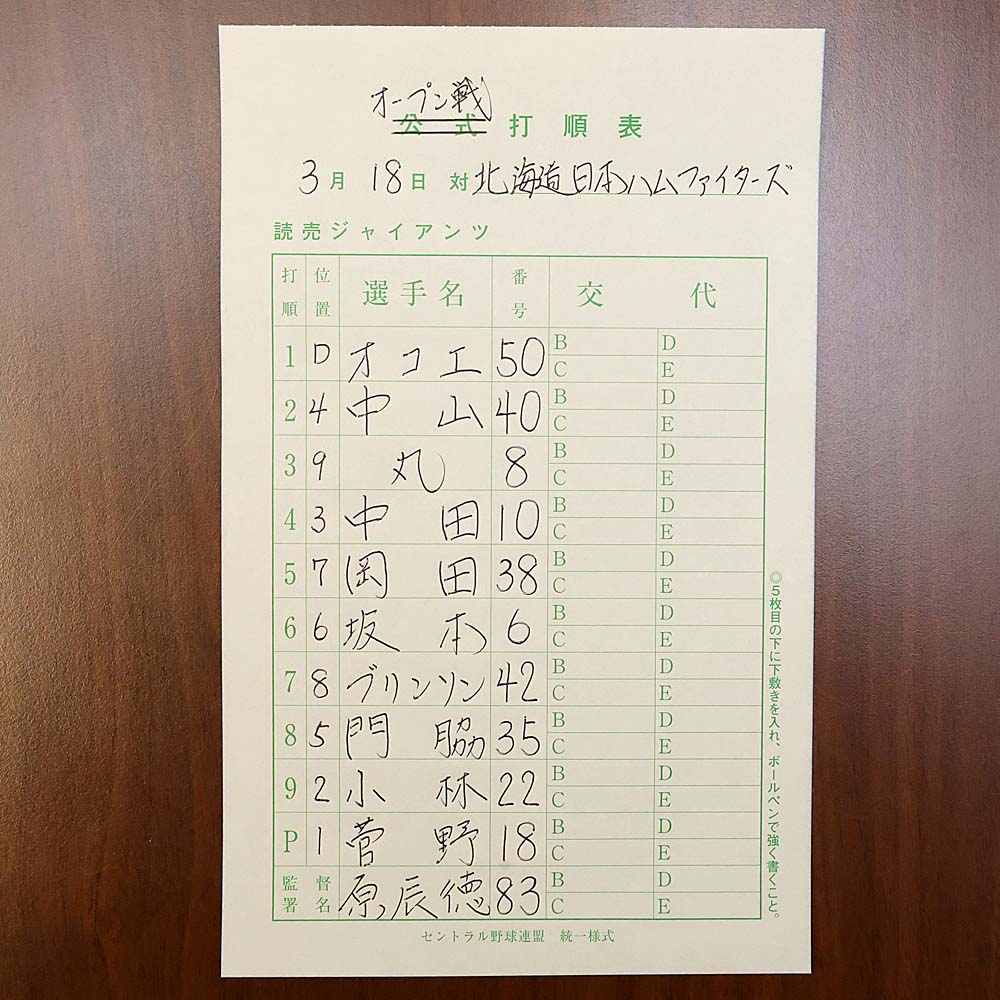 オープン戦
公式打順表
3月18日 対 北海道日本ハムファイターズ
読売ジャイアンツ
打順 位置 選手名 番号 交代
1 D オコエ 50 B D
C E
2 4 中山 40 B D
C E
3 9 丸 8 B D
C E
4 3 中田 10 B D
C E
5 7 岡田 38 B D
C E
6 6 坂本 6 B D
C E
7 8 ブリンソン 42 B D
C E
8 5 門脇 35 B D
C E
9 2 小林 22 B D
C E
P 1 菅野 18 B D
C E
監督署名 原辰徳 83 B D
C E
◎5枚目の下に下敷きを入れ、ボールペンで強く書くこと。
セントラル野球連盟 統一様式